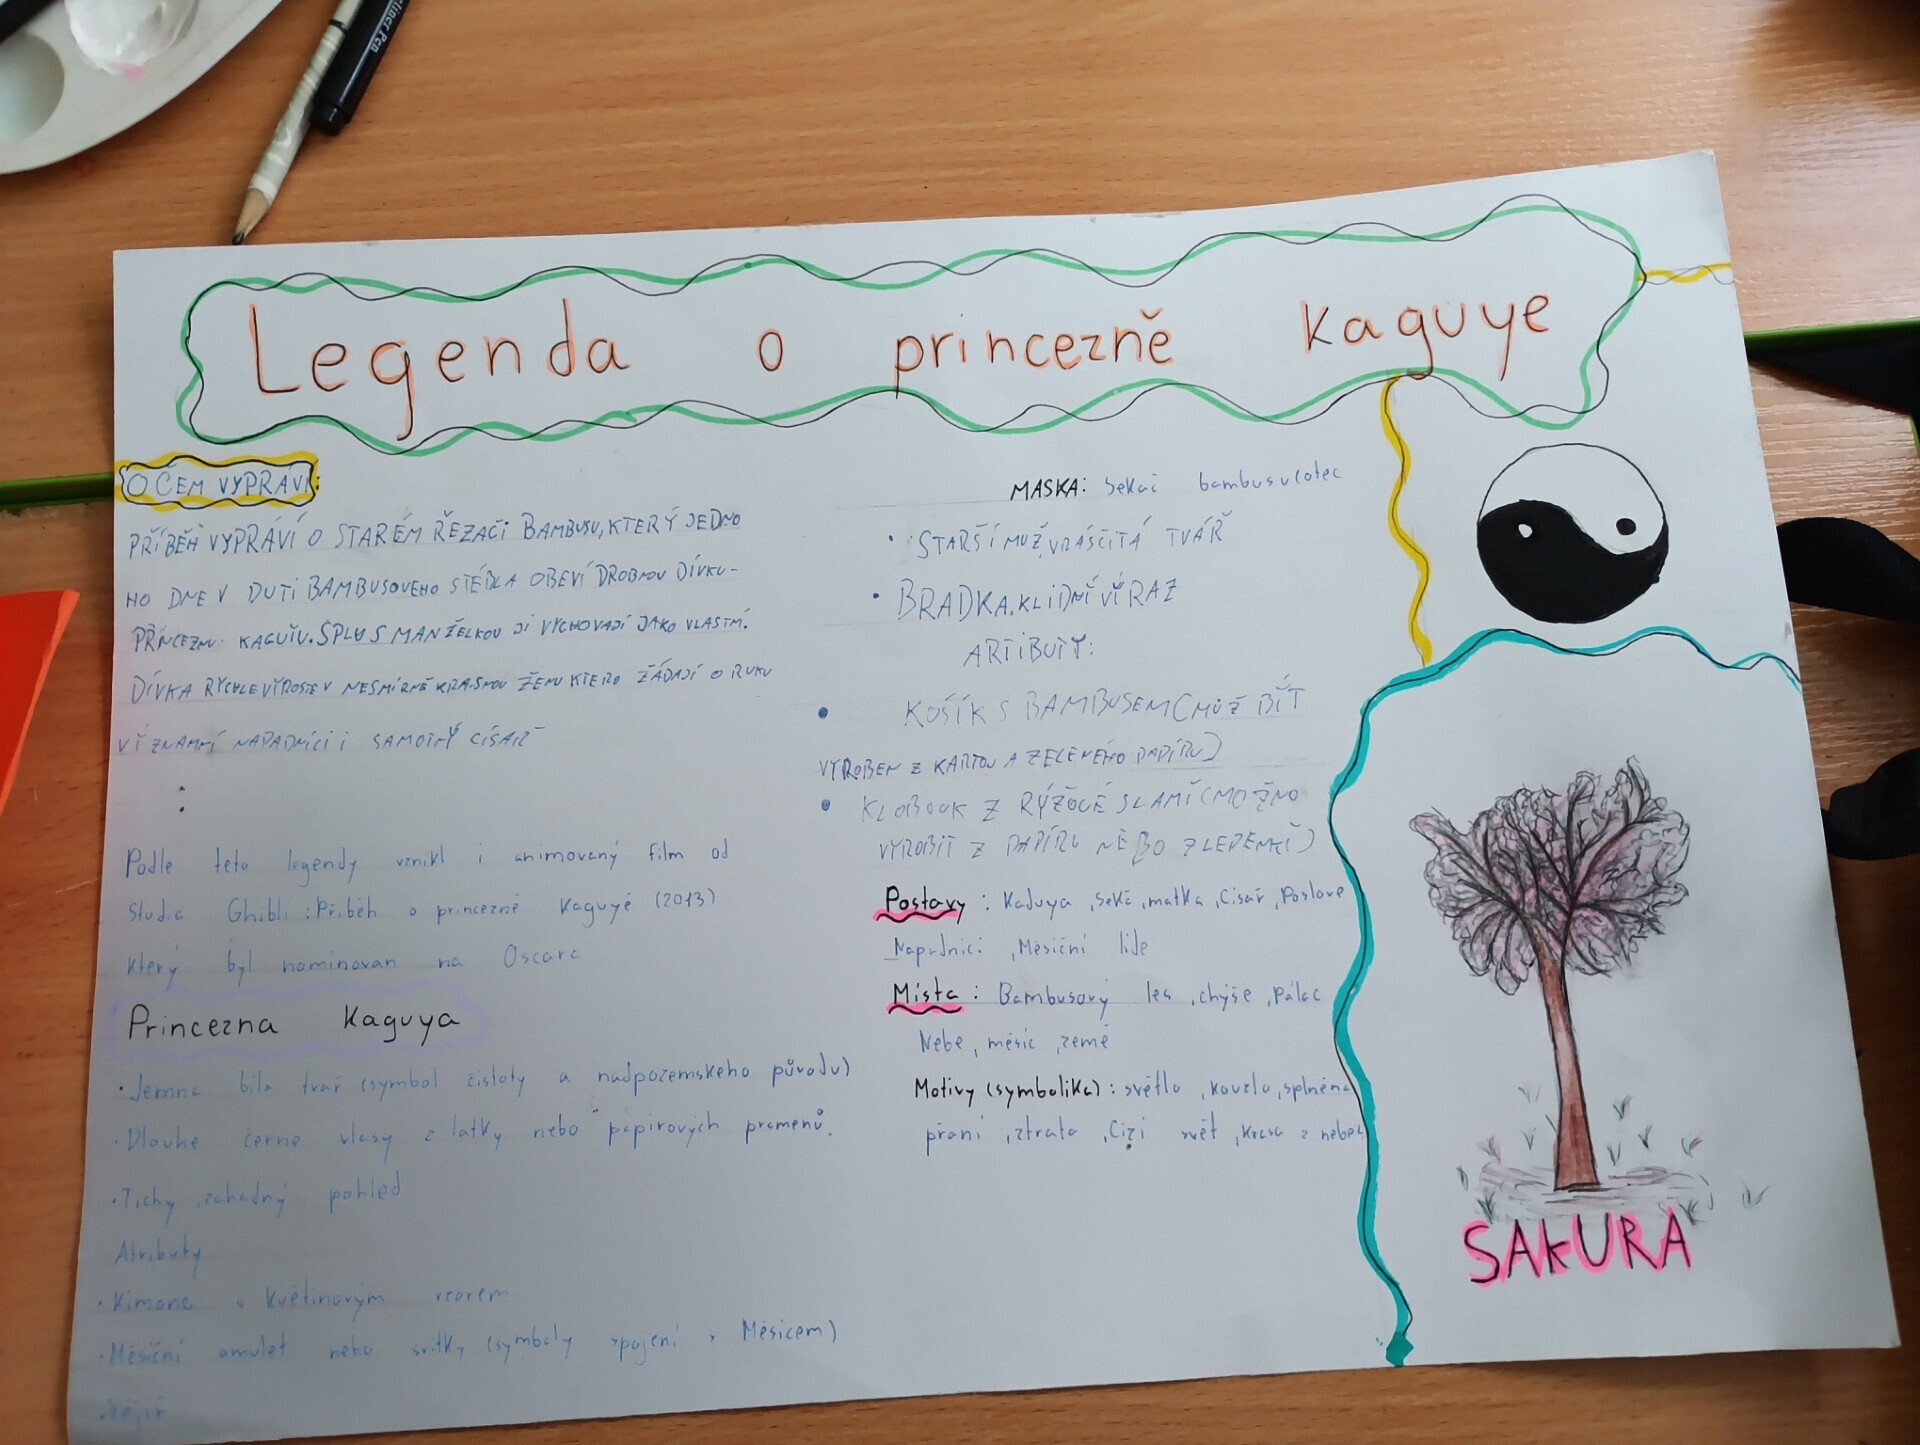 Legenda o princezně Kaguye
O ČEM VYPRÁVÍ:
PŘÍBĚH VYPRÁVÍ O STARÉM ŘEZAČI BAMBUSU, KTERÝ JEDNO
HO DNE V DUTI BAMBUSOVEHO STÉBLA OBEVÍ DROBNOU DÍVKU-
PŘINCEZNU KAGUIU. SPLU S MANŽELKOU JI VYCHOVAJÍ JAKO VLASTNÍ.
DÍVKA RYCHLE VÍROSTE V NESMÍRNĚ KRASNOU ŽENU KTERO ŽÁDAJÍ O RUKU
VÍZNAMNÍ NAPADNÍCI I SAMOTNÝ CÍSAŘ
:
Podle teto legendy vznikl i animovaný film od
studia Ghibli : Příběh o princezně Kaguyé (2013)
který byl nominovan na Oscara
Princezna Kaguya
• Jemna bíla tvař (symbol čistoty a nadpozemskeho původu)
• Dlouhe černe vlasy z latky nebo papirových pramenů.
• Tichy, zahadný pohled
Atributy
• Kimono s Květinovým vzorem
• Měsíční amulet nebo svitky (symboly spojení s Měsicem)
• Vějíř
MASKA: Sekač bambusu (otec
• STARŠÍ MUŽ, VRÁSČITÁ TVÁŘ
• BRADKA, KLIDNÍ VÝRAZ
ARTIBUTY:
• KOŠÍK S BAMBUSEM (MŮŽ BÍT
VYROBEN Z KARTOU A ZELENÉHO PAPÍRU)
• KLOBOUK Z RÝŽOVÉ SLAMÍ (MOŽNO
VYROBIT Z PAPÍRU NEBO Z LEPENKÍ)
Postavy : Kaduya , sekč , matka , Cisař , Poslove
Napadnici , Měsíční lide
Mista : Bambusový les , chýše , Palac
Nebe , měsíc , země
Motivy (symbolika) : světlo , kouzlo , splněna
přaní , ztrata , Cizi svět , krasa z nebes
SAKURA